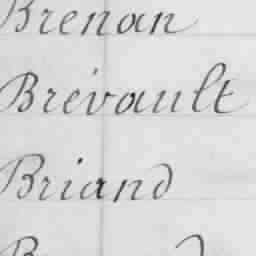 Brenan
Brévault
Briand